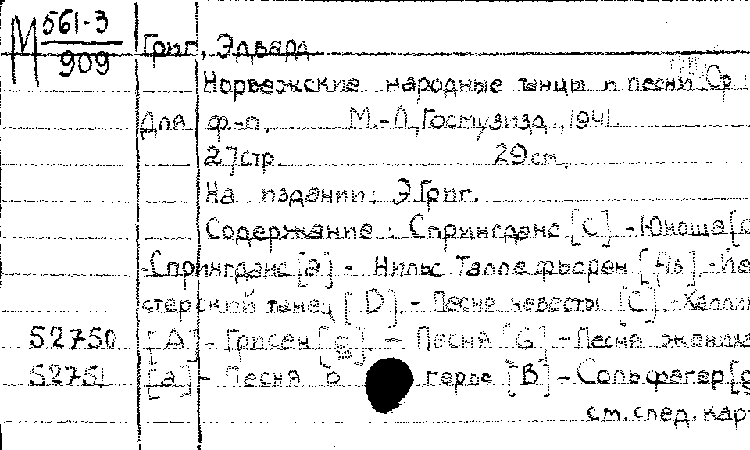 М 561-3
909
Григ, Эдвард
Норвежские народные танцы и песни Ср
Для ф-п. М.-Л., Госмузизд., 1941.
27стр. 29см.
На издании: Э.Григ.
Содержание: Спрингданс [C] - Юноша [
-Спрингданс [a] - Нильс Таллефьорен [As] -
стерский танец [D] - Песня невесты [C] -
52750 [A] - Грисен [g] - Песня [G] - Песня жениха
52751 [a] - Песня о герое [B] - Сольфагер [g
см. след. кар